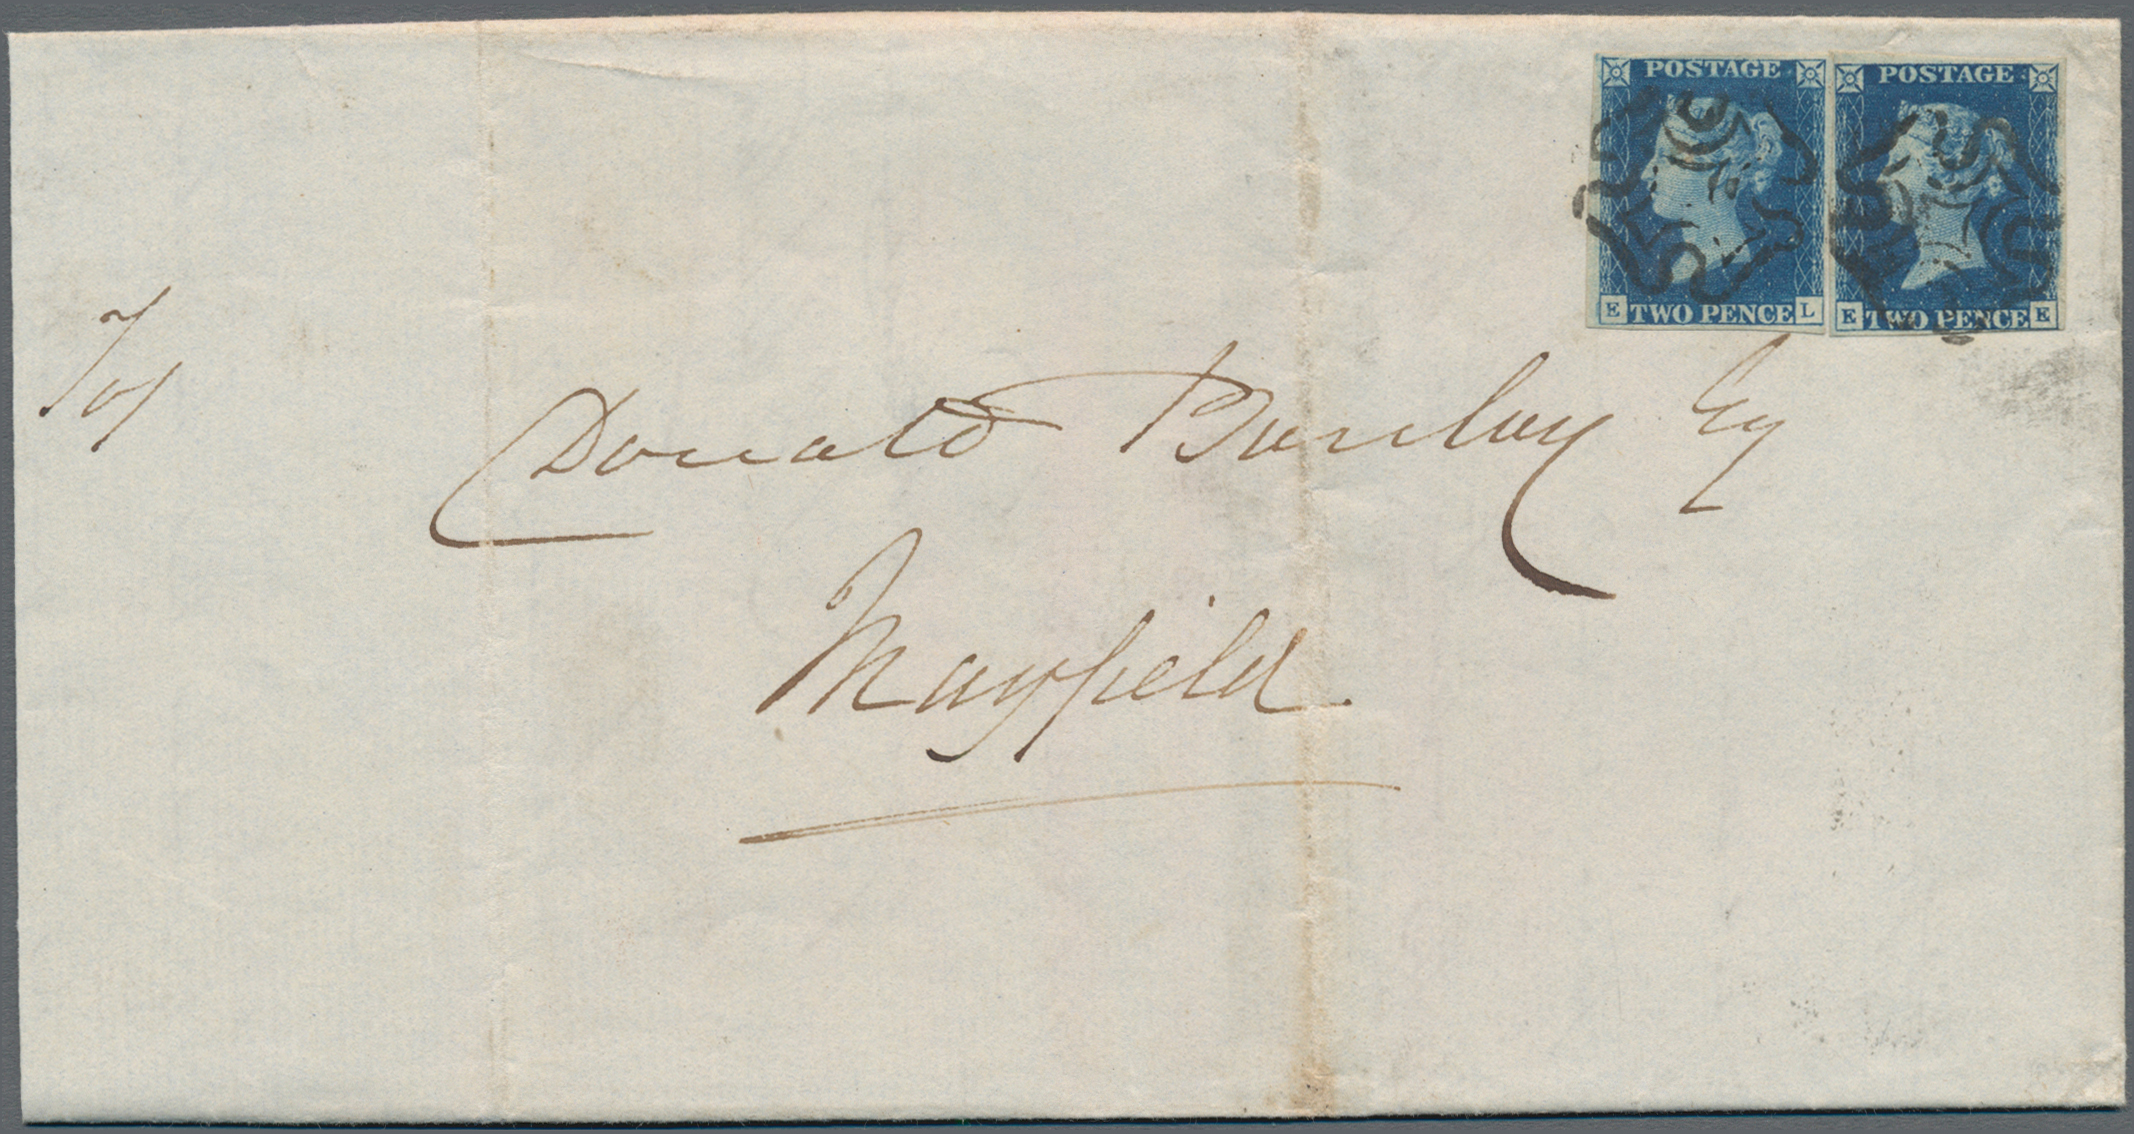 POSTAGE POSTAGE
E TWO PENCE L E TWO PENCE E
Donald Barclay Esq
Mayfield